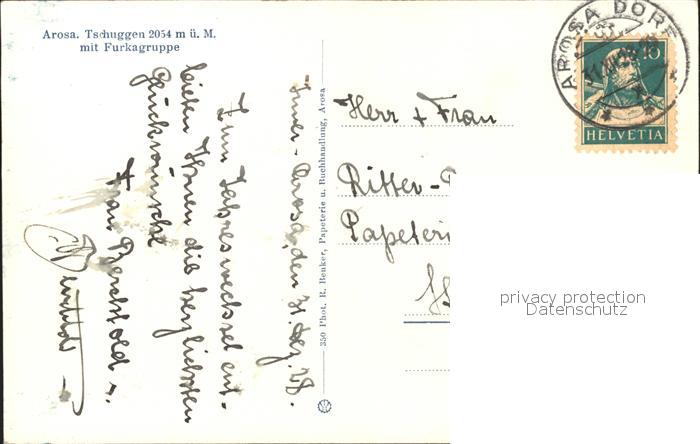 Arosa. Tschuggen 2054 m ü. M.
mit Furkagruppe
Inner-Arosa, den 31. Dez. 28.
Zum Jahreswechsel ent-
bieten Ihnen die herzlichsten
Glückwünsche
Frau Berchtold u.
350 Phot. R. Benker, Papeterie u. Buchhandlung, Arosa
Herr + Frau
Ritter-
Papeteri
AROSA DORF
10
HELVETIA
privacy protection
Datenschutz